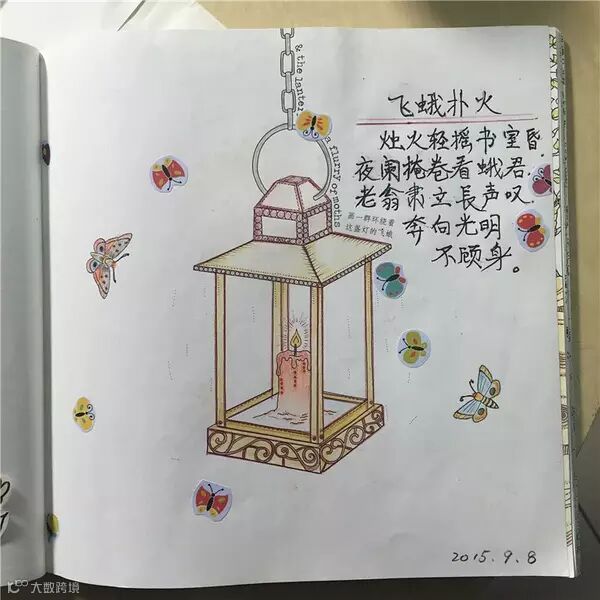 & the lanter
a flurry of moths
画一群环绕着
这盏灯的飞蛾
飞蛾扑火
烛火轻摇书室昏.
夜阑掩卷看蛾君.
老翁肃立長声叹.
奔向光明
不顾身。
2015.9.8
大数跨境